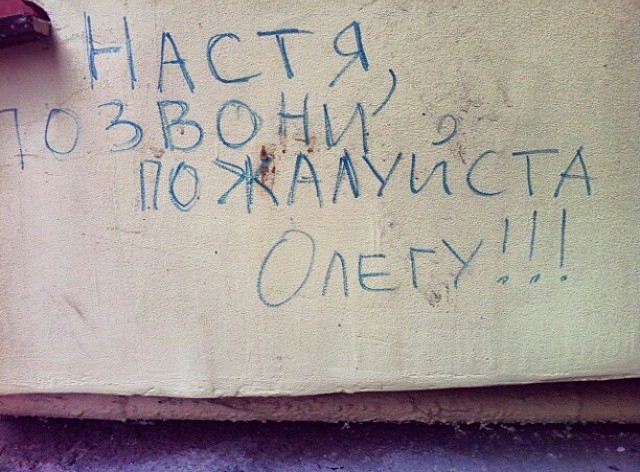 НАСТЯ,
ПОЗВОНИ,
ПОЖАЛУЙСТА
ОЛЕГУ!!!